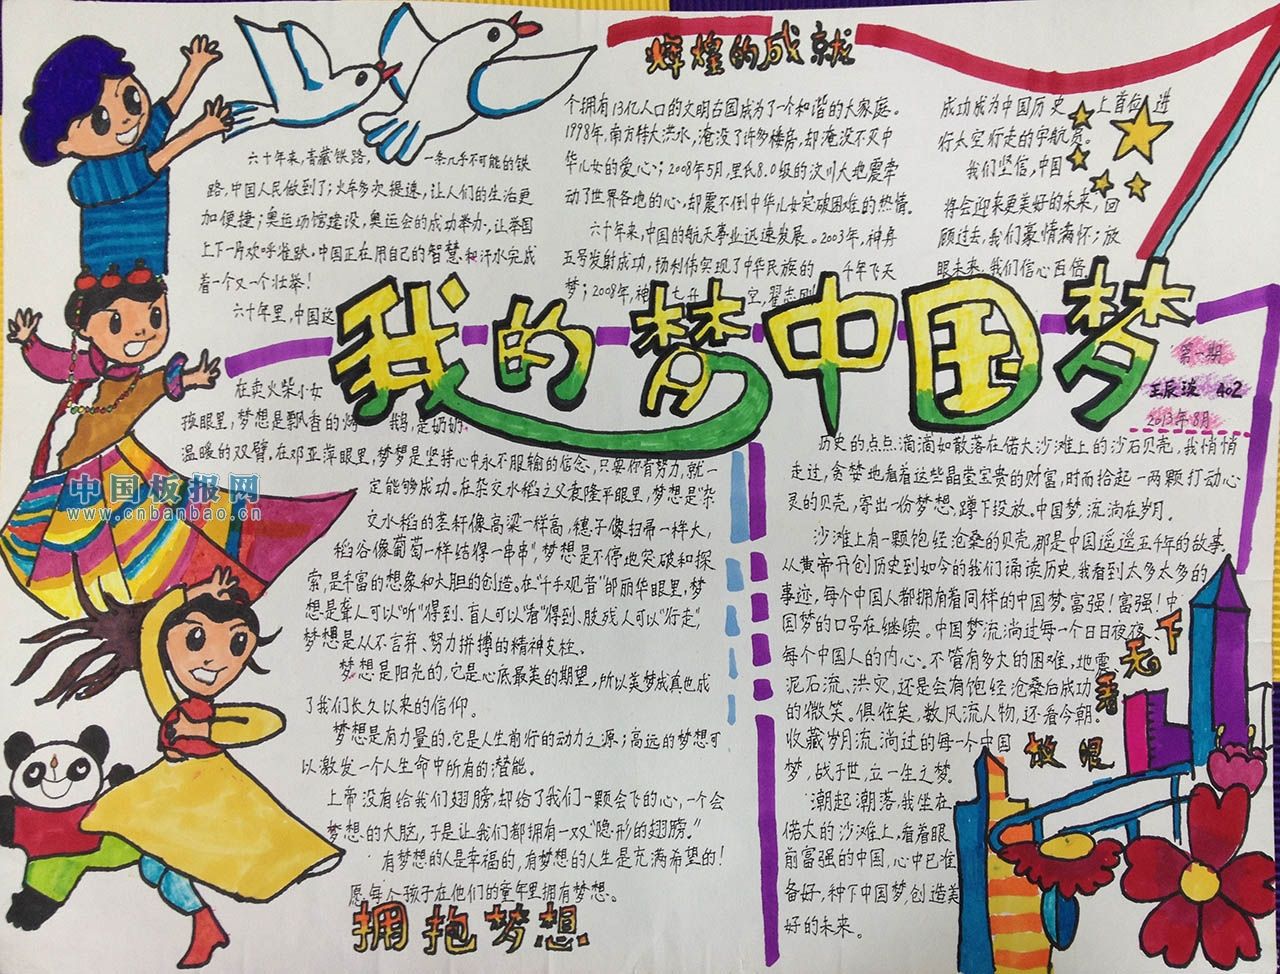 辉煌的成就
六十年来,青藏铁路,一条几乎不可能的铁
路,中国人民做到了;火车多次提速,让人们的生活更
加便捷;奥运场馆建设,奥运会的成功举办,让举国
上下一片欢呼雀跃,中国正在用自己的智慧和汗水完成
着一个又一个壮举!
六十年里,中国这
个拥有13亿人口的文明古国成为了一个和谐的大家庭。
1998年,南方特大洪水,淹没了许多楼房,却淹没不灭中
华儿女的爱心;2008年5月,里氏8.0级的汶川大地震牵
动了世界各地的心,却震不倒中华儿女突破困难的热情。
六十年来,中国的航天事业迅速发展。2003年,神舟
五号发射成功,杨利伟实现了中华民族的千年飞天
梦;2008年,神七升空,翟志刚
成功成为中国历史上首位进
行太空行走的宇航员。
我们坚信,中国
将会迎来更美好的未来,回
顾过去,我们豪情满怀;放
眼未来,我们信心百倍
我的梦中国梦
第一期
402
2013年8月
在卖火柴小女
孩眼里,梦想是飘香的烤鹅,是奶奶
温暖的双臂。在邓亚萍眼里,梦想是坚持心中永不服输的信念,只要你肯努力,就一
定能够成功。在杂交水稻之父袁隆平眼里,梦想是“杂
交水稻的茎秆像高粱一样高,穗子像扫帚一样大,
稻谷像葡萄一样结得一串串”,梦想是不停地突破和探
索,是丰富的想象和大胆的创造。在“千手观音”邰丽华眼里,梦
想是聋人可以“听”得到、盲人可以“看”得到、肢残人可以“行走”,
梦想是从不言弃、努力拼搏的精神支柱。
梦想是阳光的,它是心底最美的期望,所以美梦成真也成
了我们长久以来的信仰。
梦想是有力量的,它是人生前行的动力之源;高远的梦想可
以激发一个人生命中所有的潜能。
上帝没有给我们翅膀,却给了我们一颗会飞的心,一个会
梦想的大脑,于是让我们都拥有一双“隐形的翅膀。”
有梦想的人是幸福的,有梦想的人生是充满希望的!
愿每个孩子在他们的童年里拥有梦想。
拥抱梦想
历史的点点滴滴如散落在偌大沙滩上的沙石贝壳,我悄悄
走过,贪婪地看着这些晶莹宝贵的财富,时而拾起一两颗打动心
灵的贝壳,寄出一份梦想,蹲下投放。中国梦,流淌在岁月。
沙滩上有一颗饱经沧桑的贝壳,那是中国遥遥五千年的故事,
从黄帝开创历史到如今的我们诵读历史,我看到太多太多的
事迹,每个中国人都拥有着同样的中国梦。富强!富强!中
国梦的口号在继续。中国梦流淌过每一个日日夜夜、
每个中国人的内心、不管有多大的困难,地震、
泥石流、洪灾,还是会有饱经沧桑后成功
的微笑。俱往矣,数风流人物,还看今朝。
收藏岁月流淌过的每一个中国
梦,战于世,立一生之梦。
潮起潮落,我坐在
偌大的沙滩上,看着眼
前富强的中国,心中已准
备好,种下中国梦,创造美
好的未来。
放眼
看
天下
中国板报网
www.cnbanbao.cn